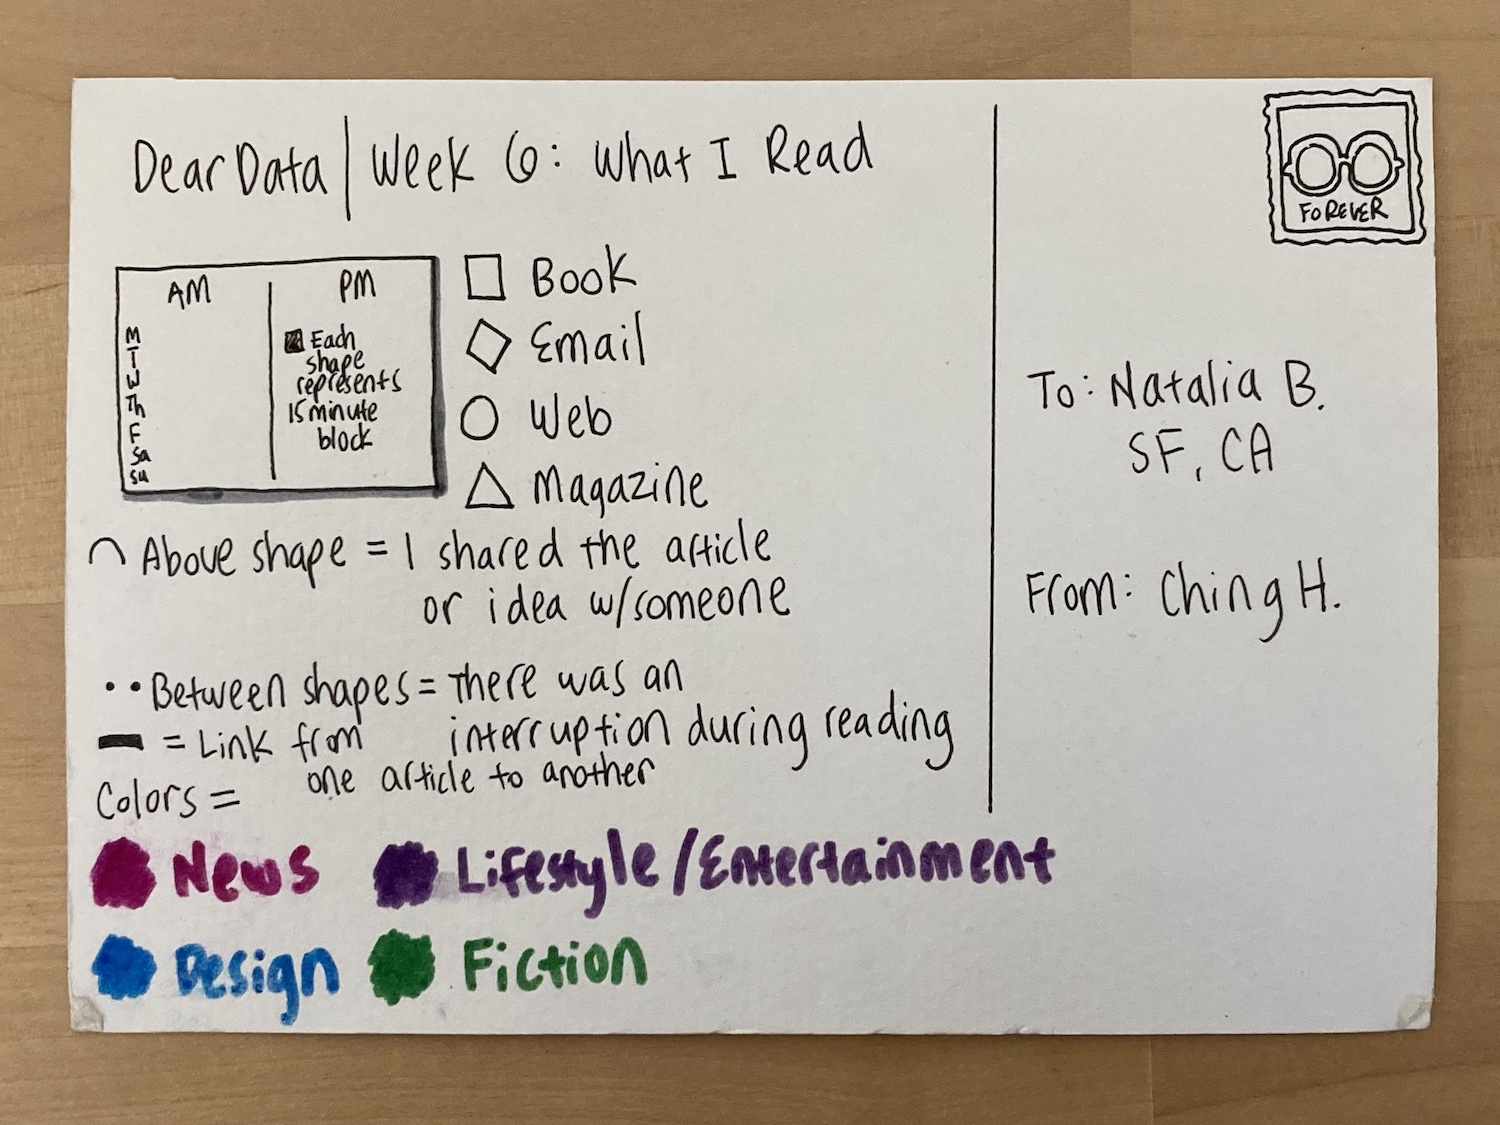 Dear Data | Week 6: What I Read
FOREVER
AM
PM
M
T
W
Th
F
Sa
Su
Each
shape
represents
15 minute
block
Book
Email
Web
Magazine
Above shape = I shared the article
or idea w/someone
Between shapes = There was an
interruption during reading
= Link from
one article to another
Colors =
News
Lifestyle/Entertainment
Design
Fiction
To: Natalia B.
SF, CA
From: Ching H.